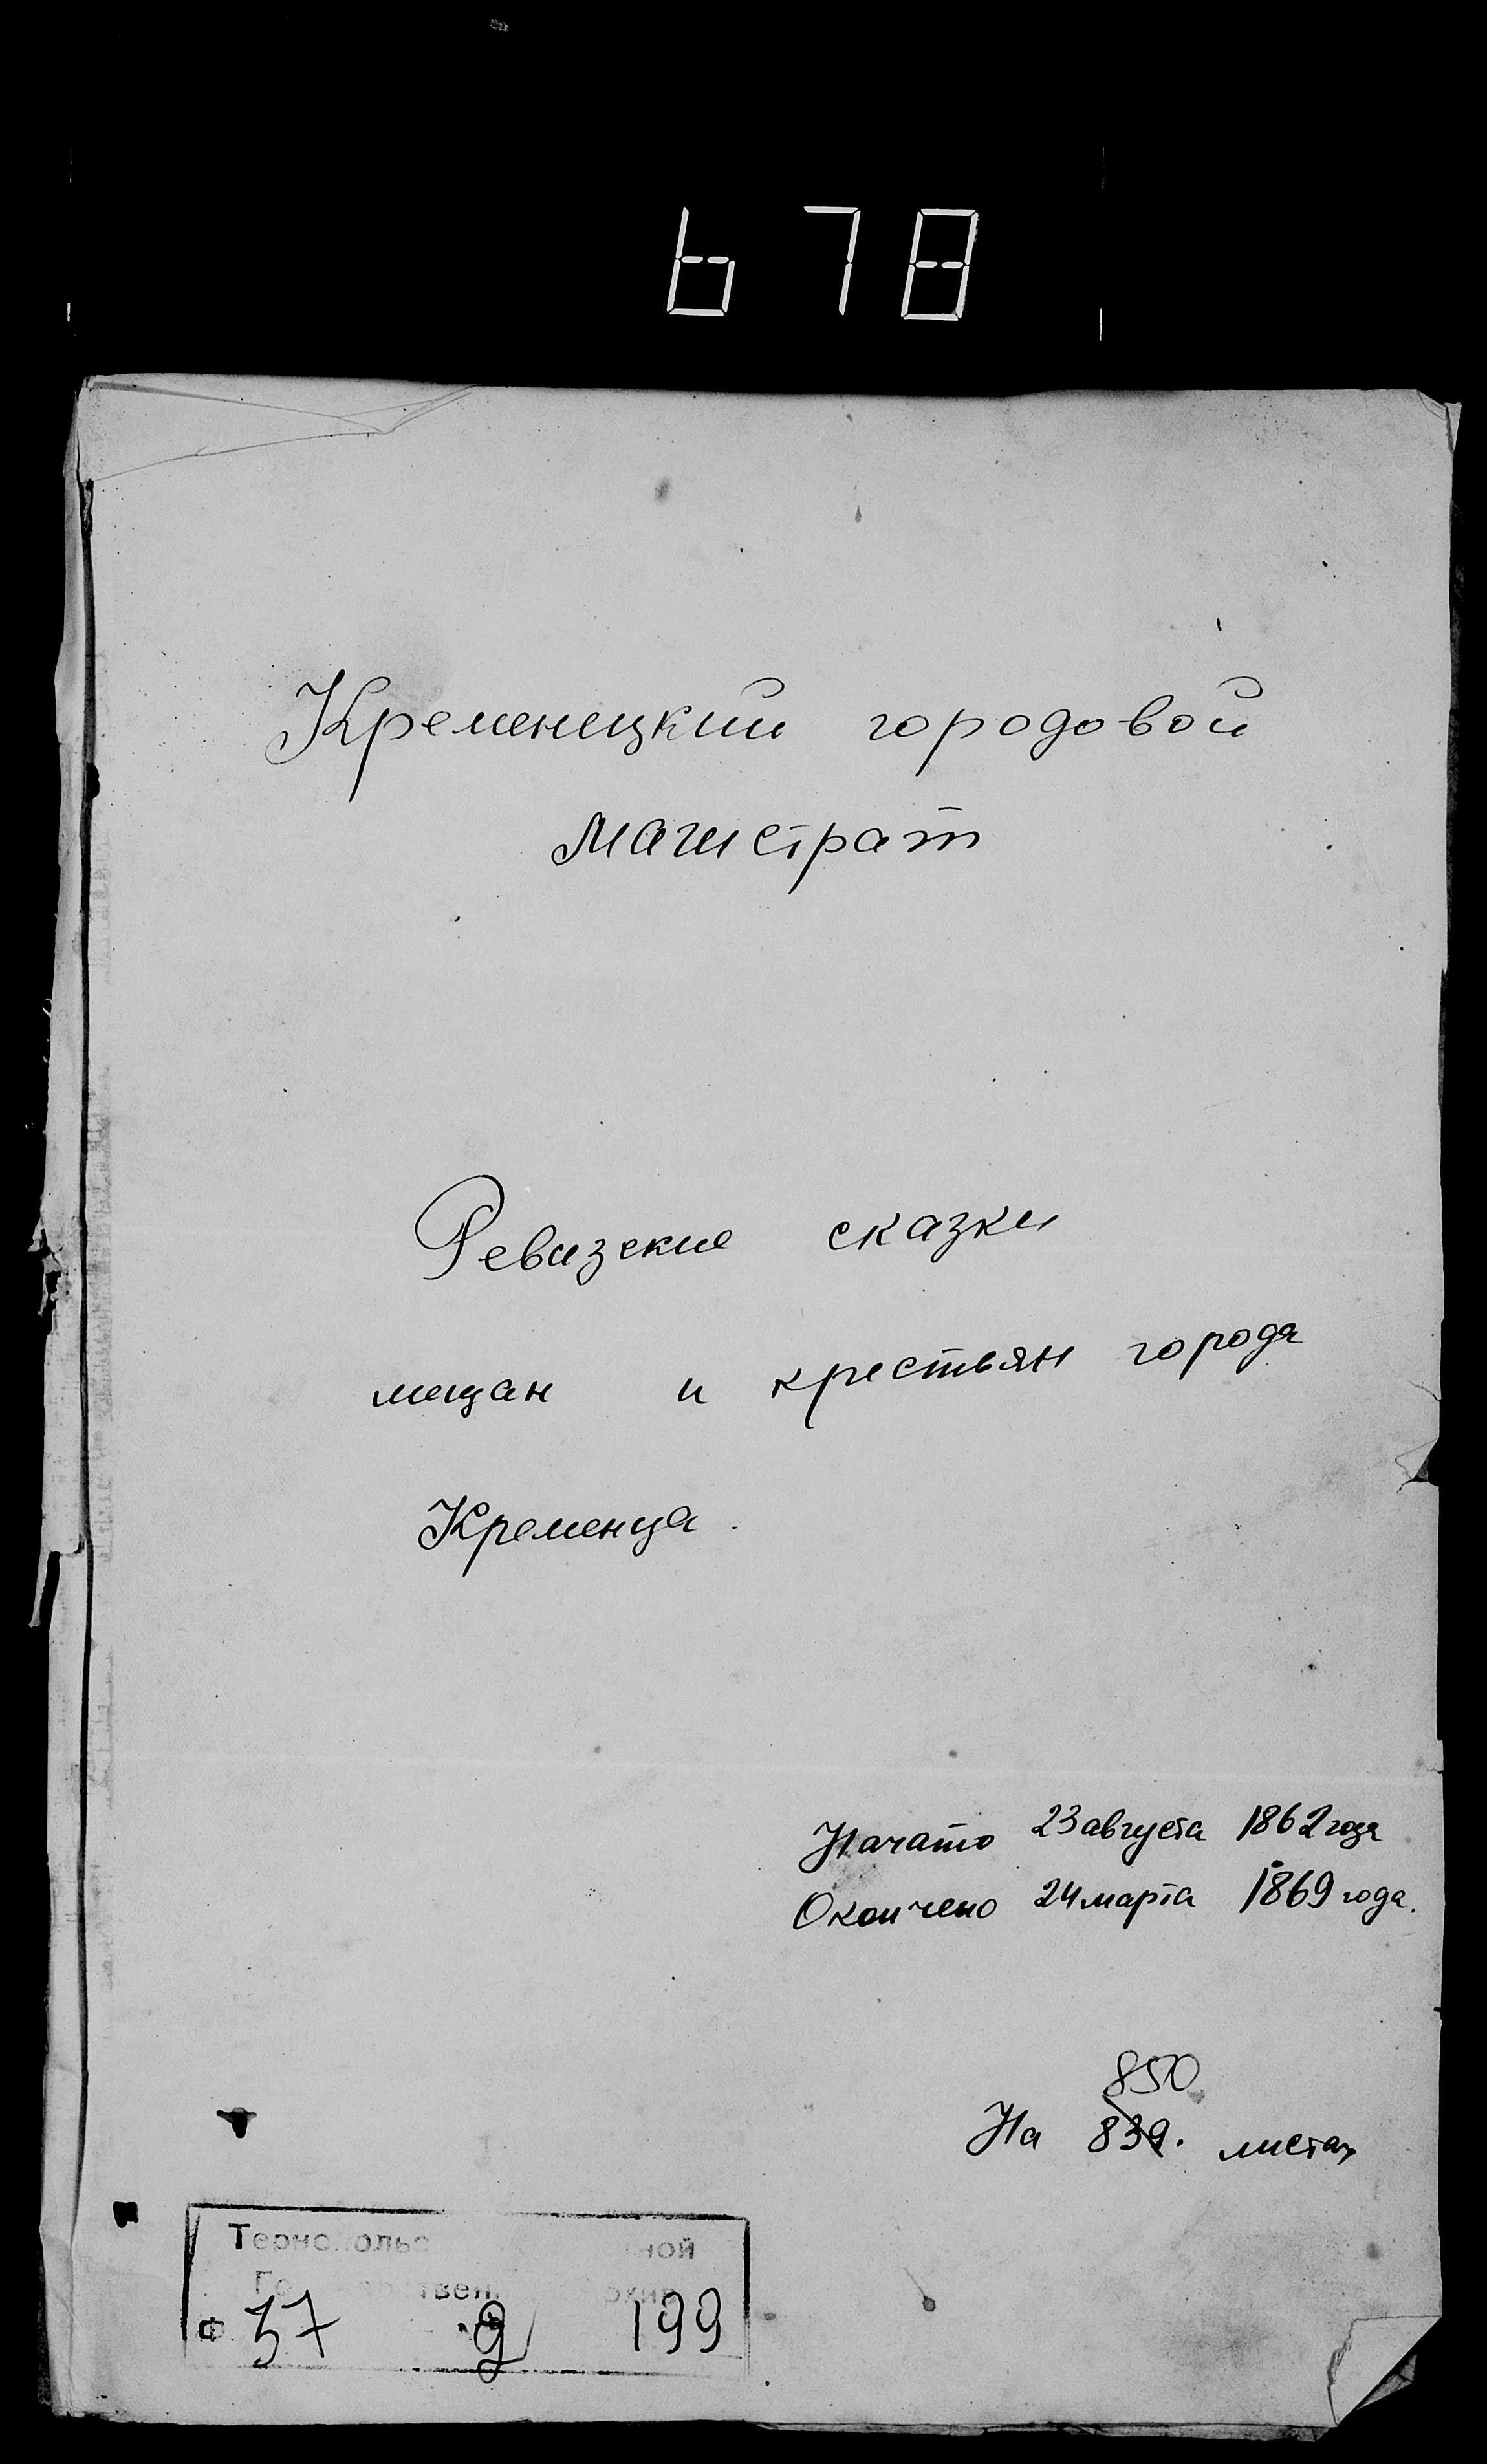 678
Кременецкий городовой
магистрат
Ревизские сказки
мещан и крестьян города
Кременца.
Начато 23 августа 1862 года
Окончено 24 марта 1869 года.
850
На 839. листах
Ф. 37 2 199